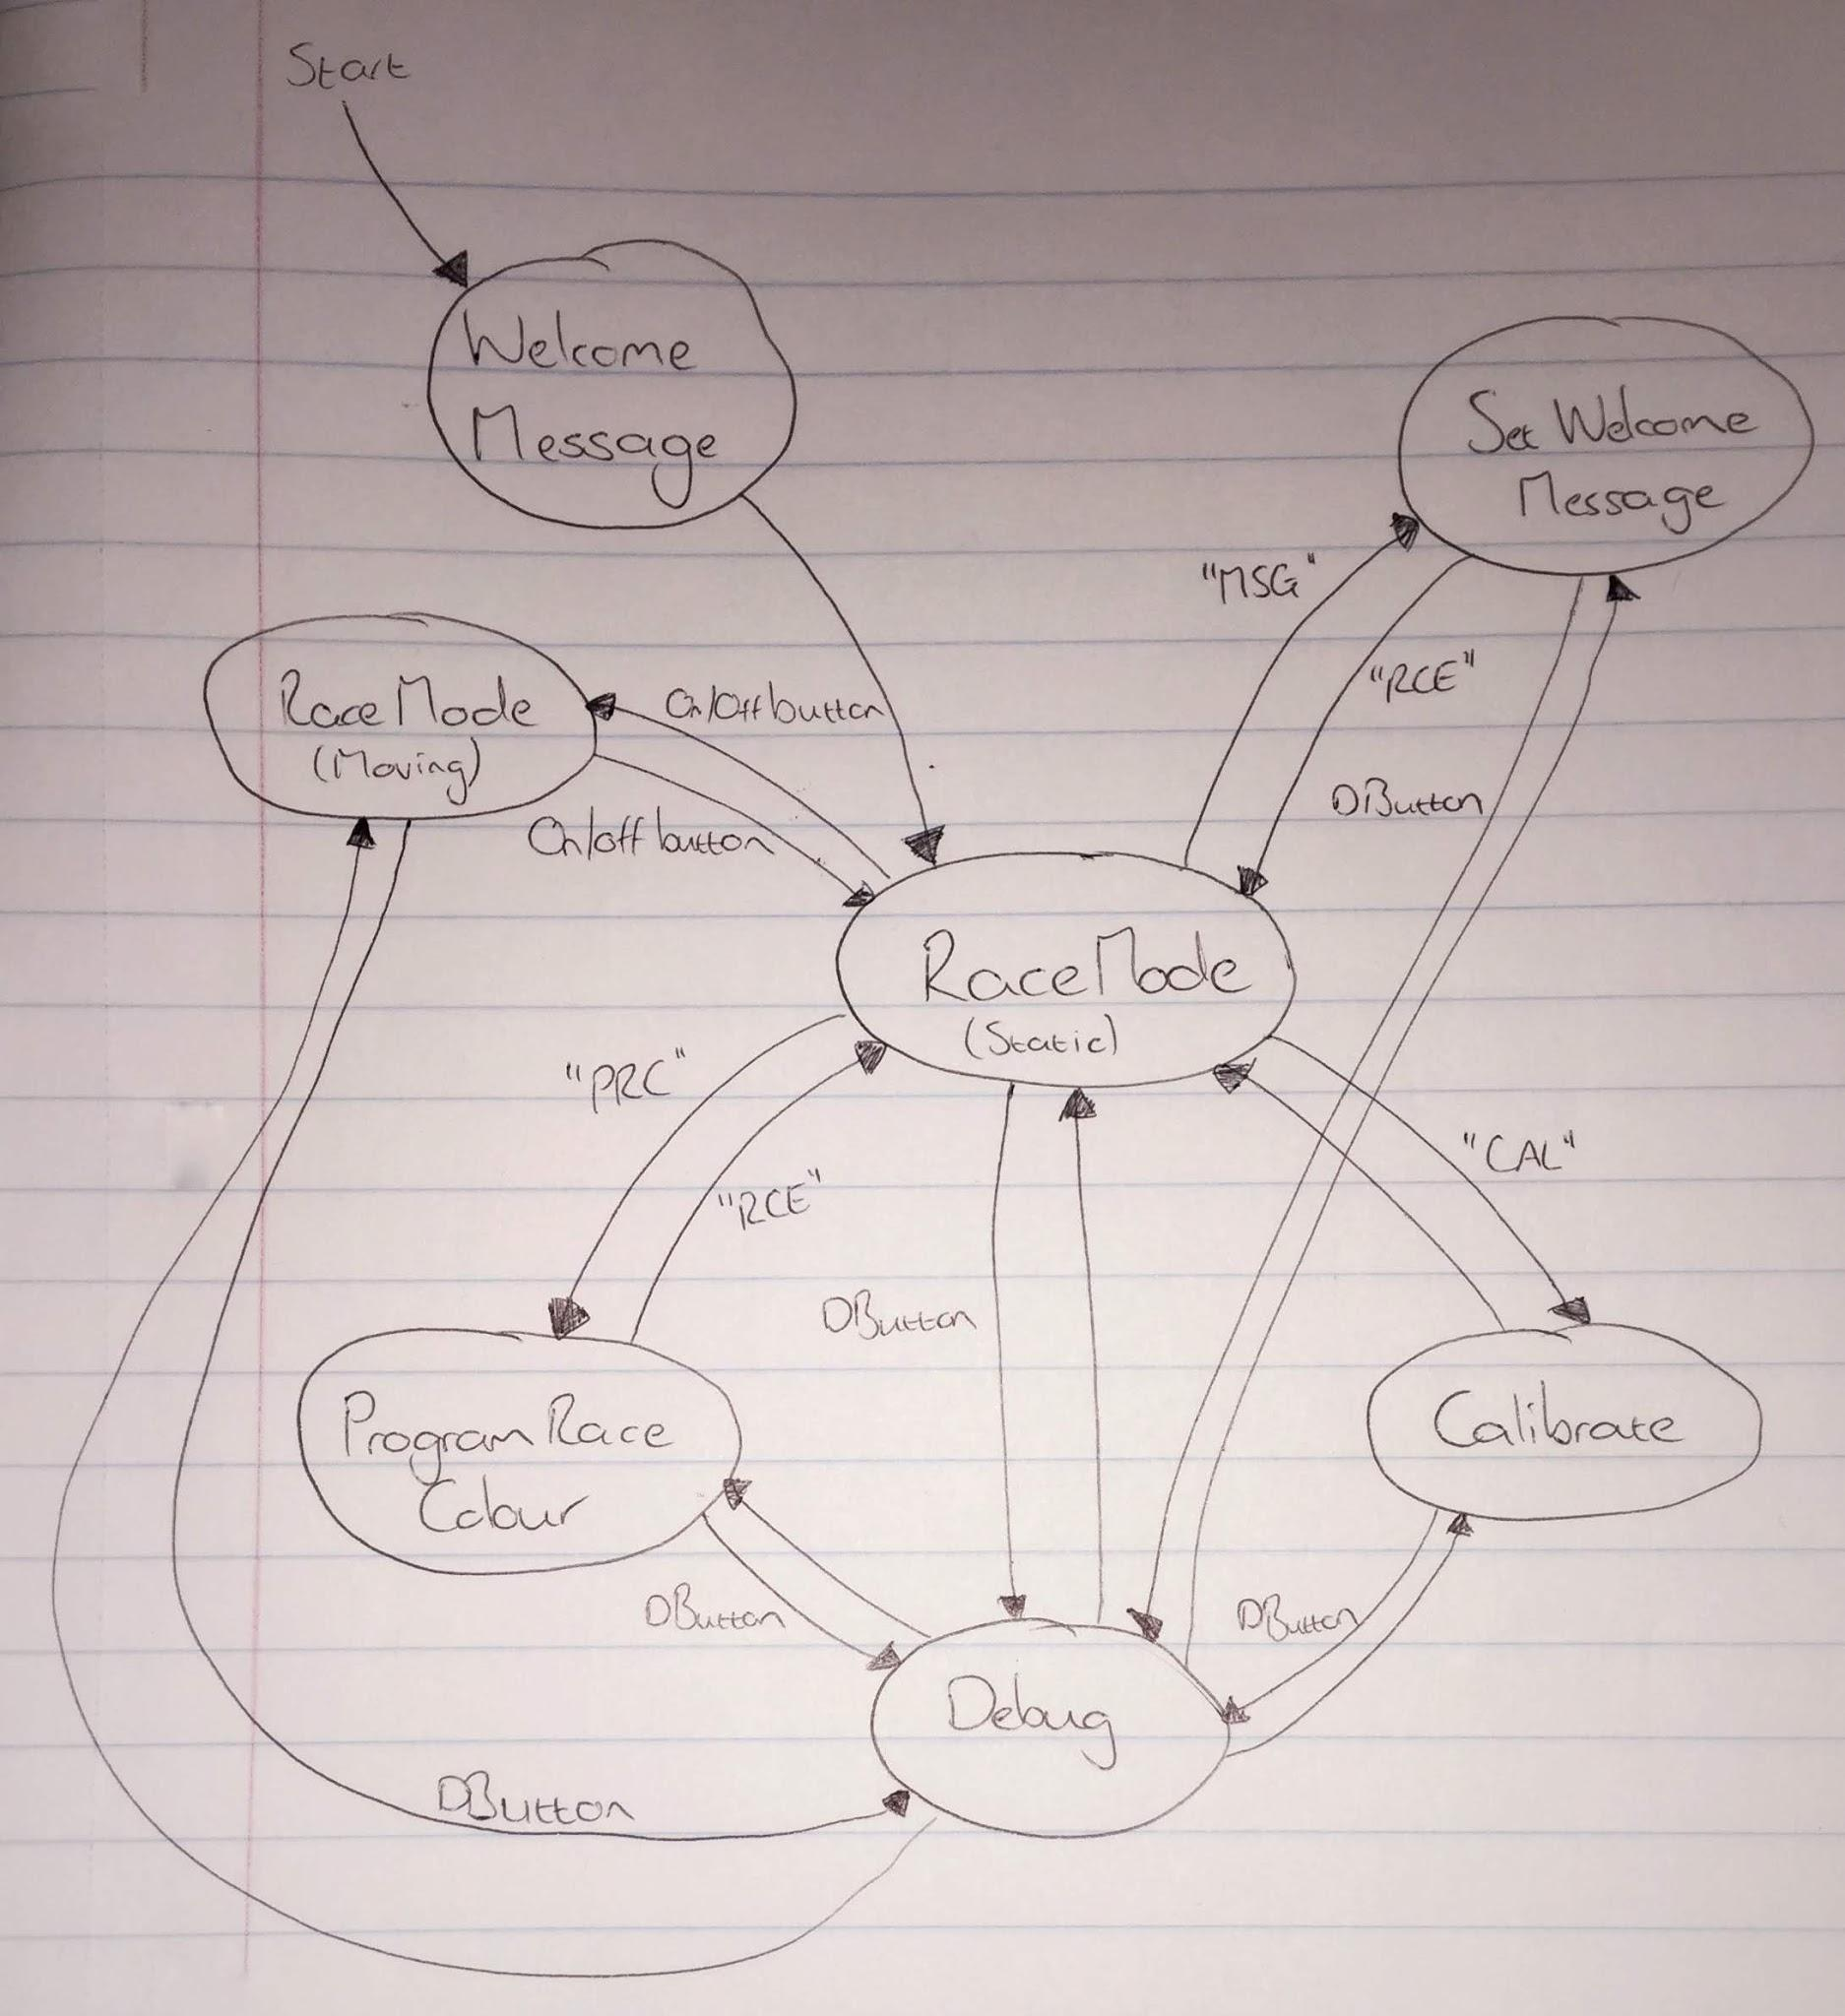 Start
Welcome
Message
Set Welcome
Message
"MSG"
"RCE"
Race Mode
(Moving)
On/Off button
On/off button
DButton
Race Mode
(Static)
"PRC"
"RCE"
"CAL"
DButton
Program Race
Colour
Calibrate
DButton
DButton
Debug
DButton